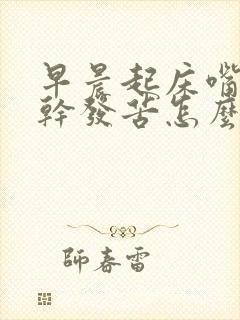 早晨起床嘴
幹發苦怎麼
師春雷